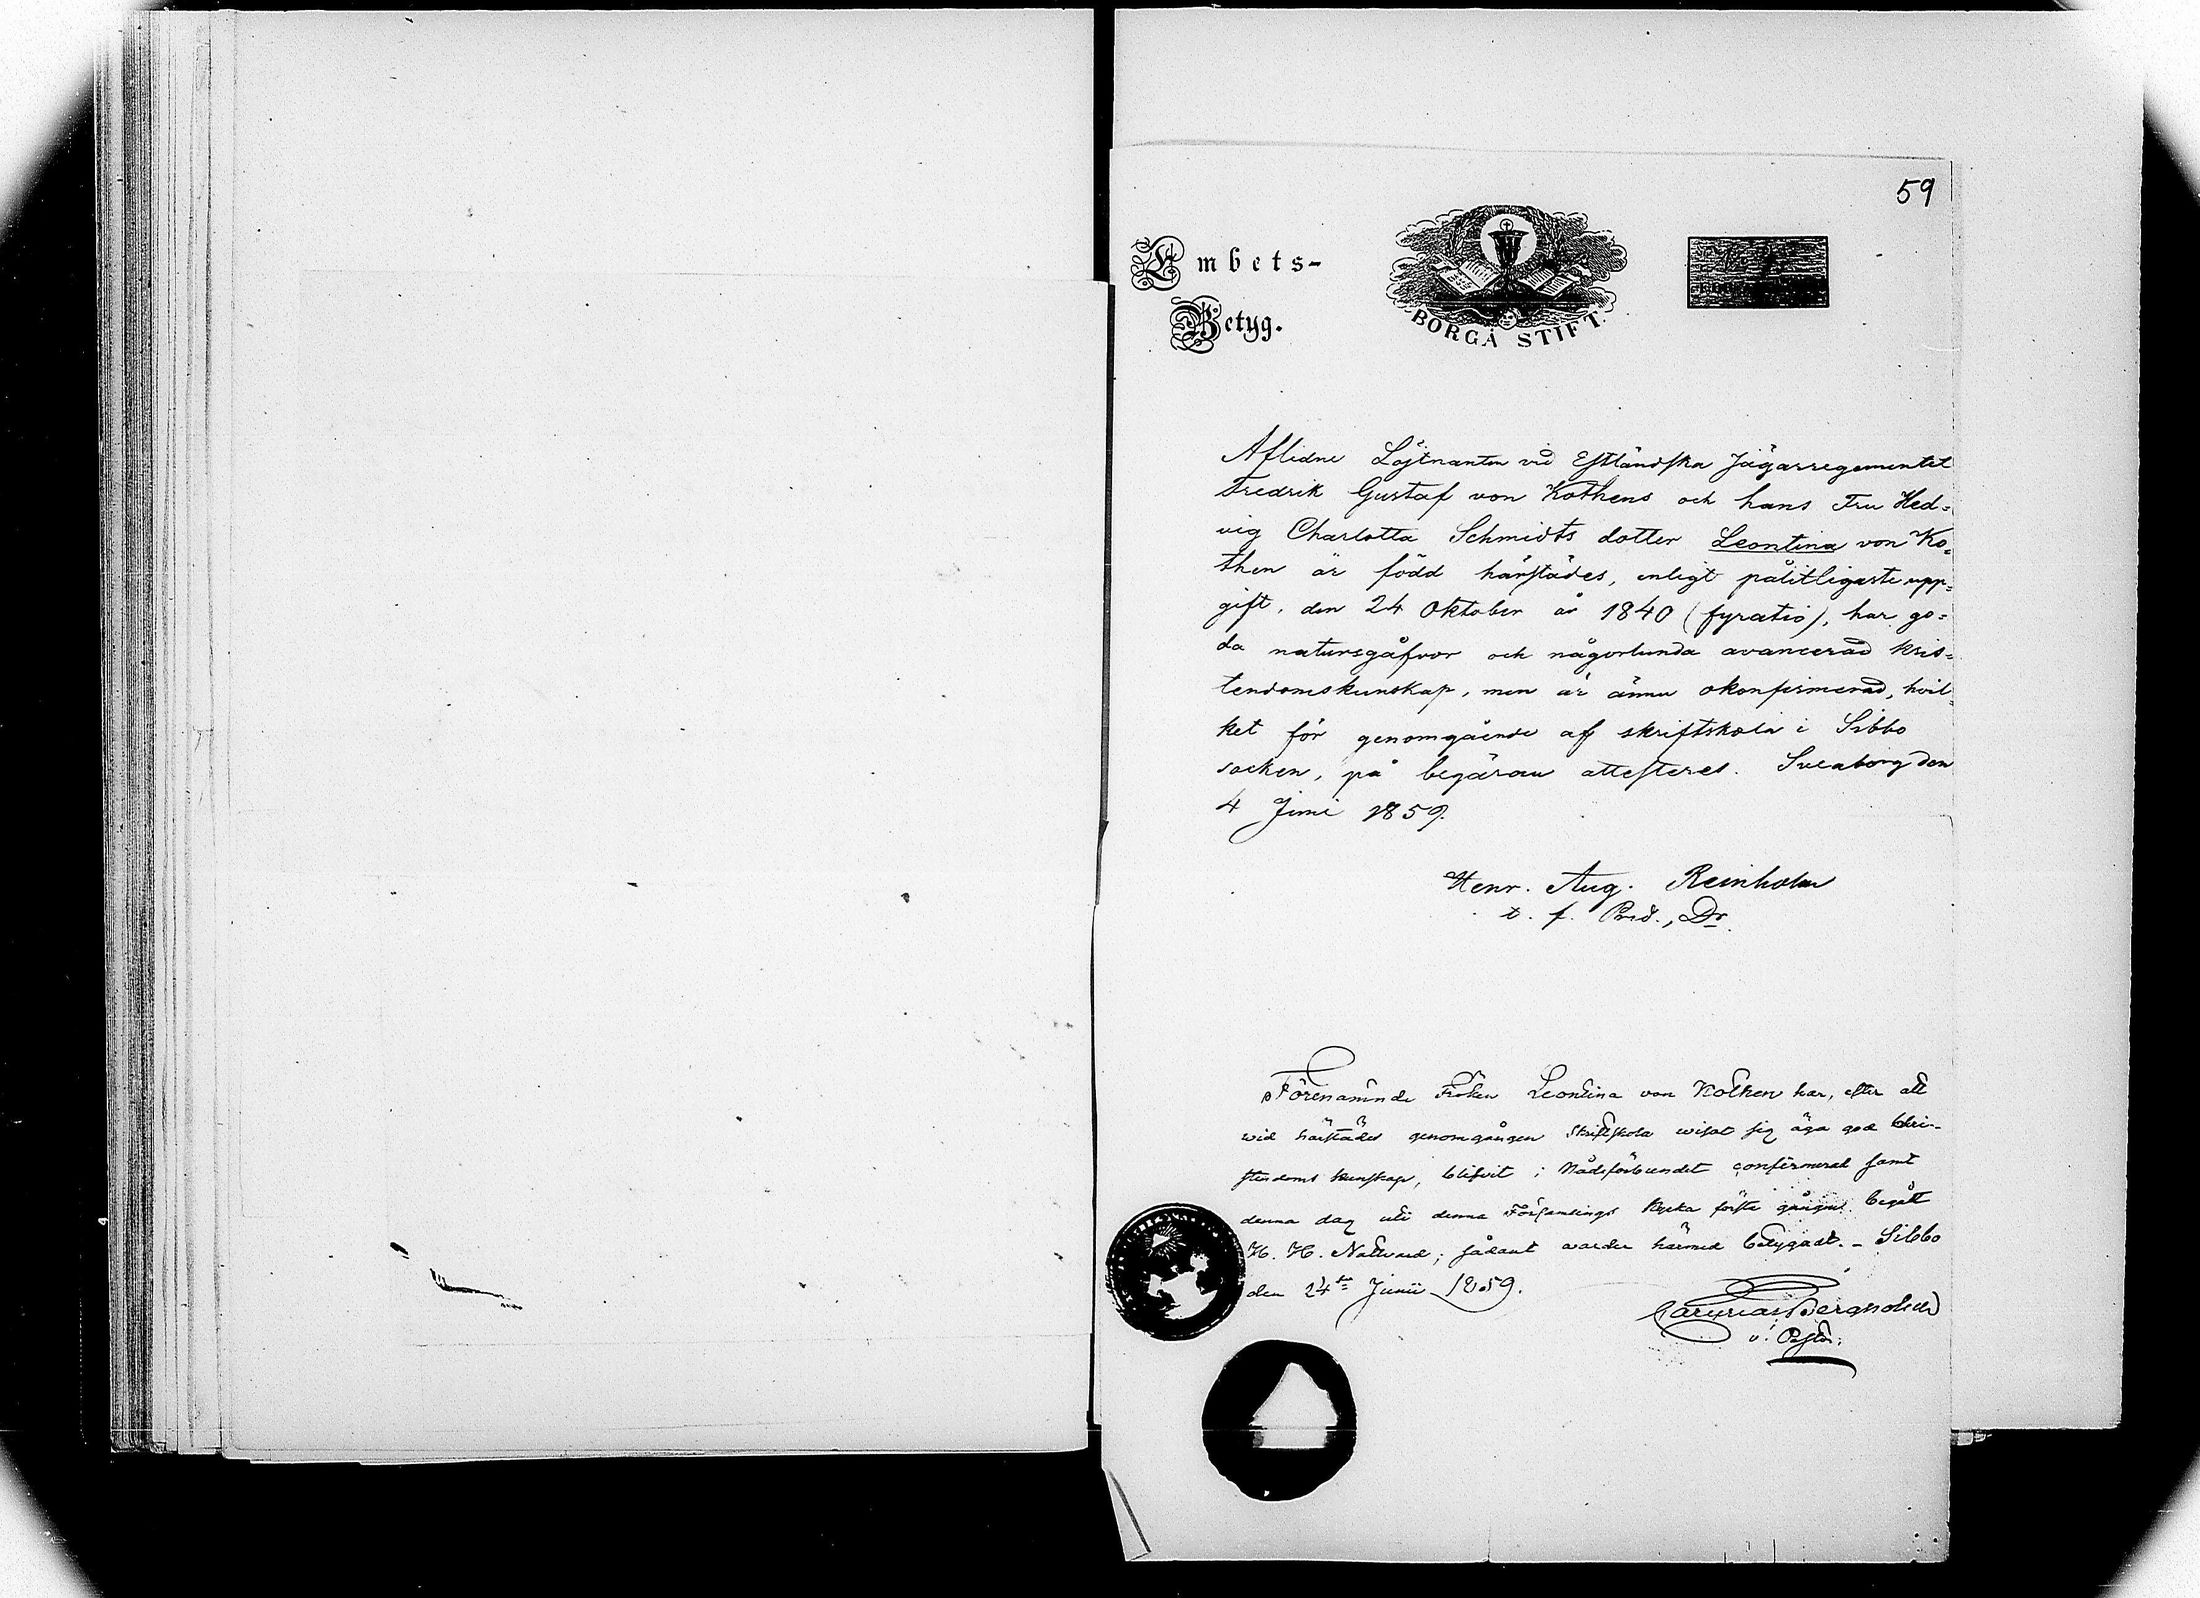 59
Embets-
Betyg.
BORGÅ STIFT.
Aflidne Löjtnanten vid Estländska Jägarregementet
Fredrik Gustaf von Kothens och hans Fru Hed-
vig Charlotta Schmidts dotter Leontina von Ko-
then är född härstädes, enligt pålitligaste upp-
gift, den 24 Oktober år 1840 (fyratio), har go-
da natursgåfvor och någorlunda avancerad kris-
tendomskunskap, men är ännu okonfirmerad, hvil-
ket för genomgående af skriftskola i Sibbo
socken, på begäran attesteras. Sveaborg den
4 Juni 1859.
Henr. Aug. Reinholm
t. f. Pred., Dr.
Förenämnde Fröken Leontina von Kothen har, efter att
wid härstädes genomgången Skriftskola wisat sig äga god Chri-
stendoms kunskap, blifvit i Nådeförbundet confirmerad samt
denna dag uti denna Församlings Kyrka första gången begått
H. H. Nattvard; sådant warder härmed betygadt. - Sibbo
den 24de Junii 1859.
Bergholm
v. Pastor.